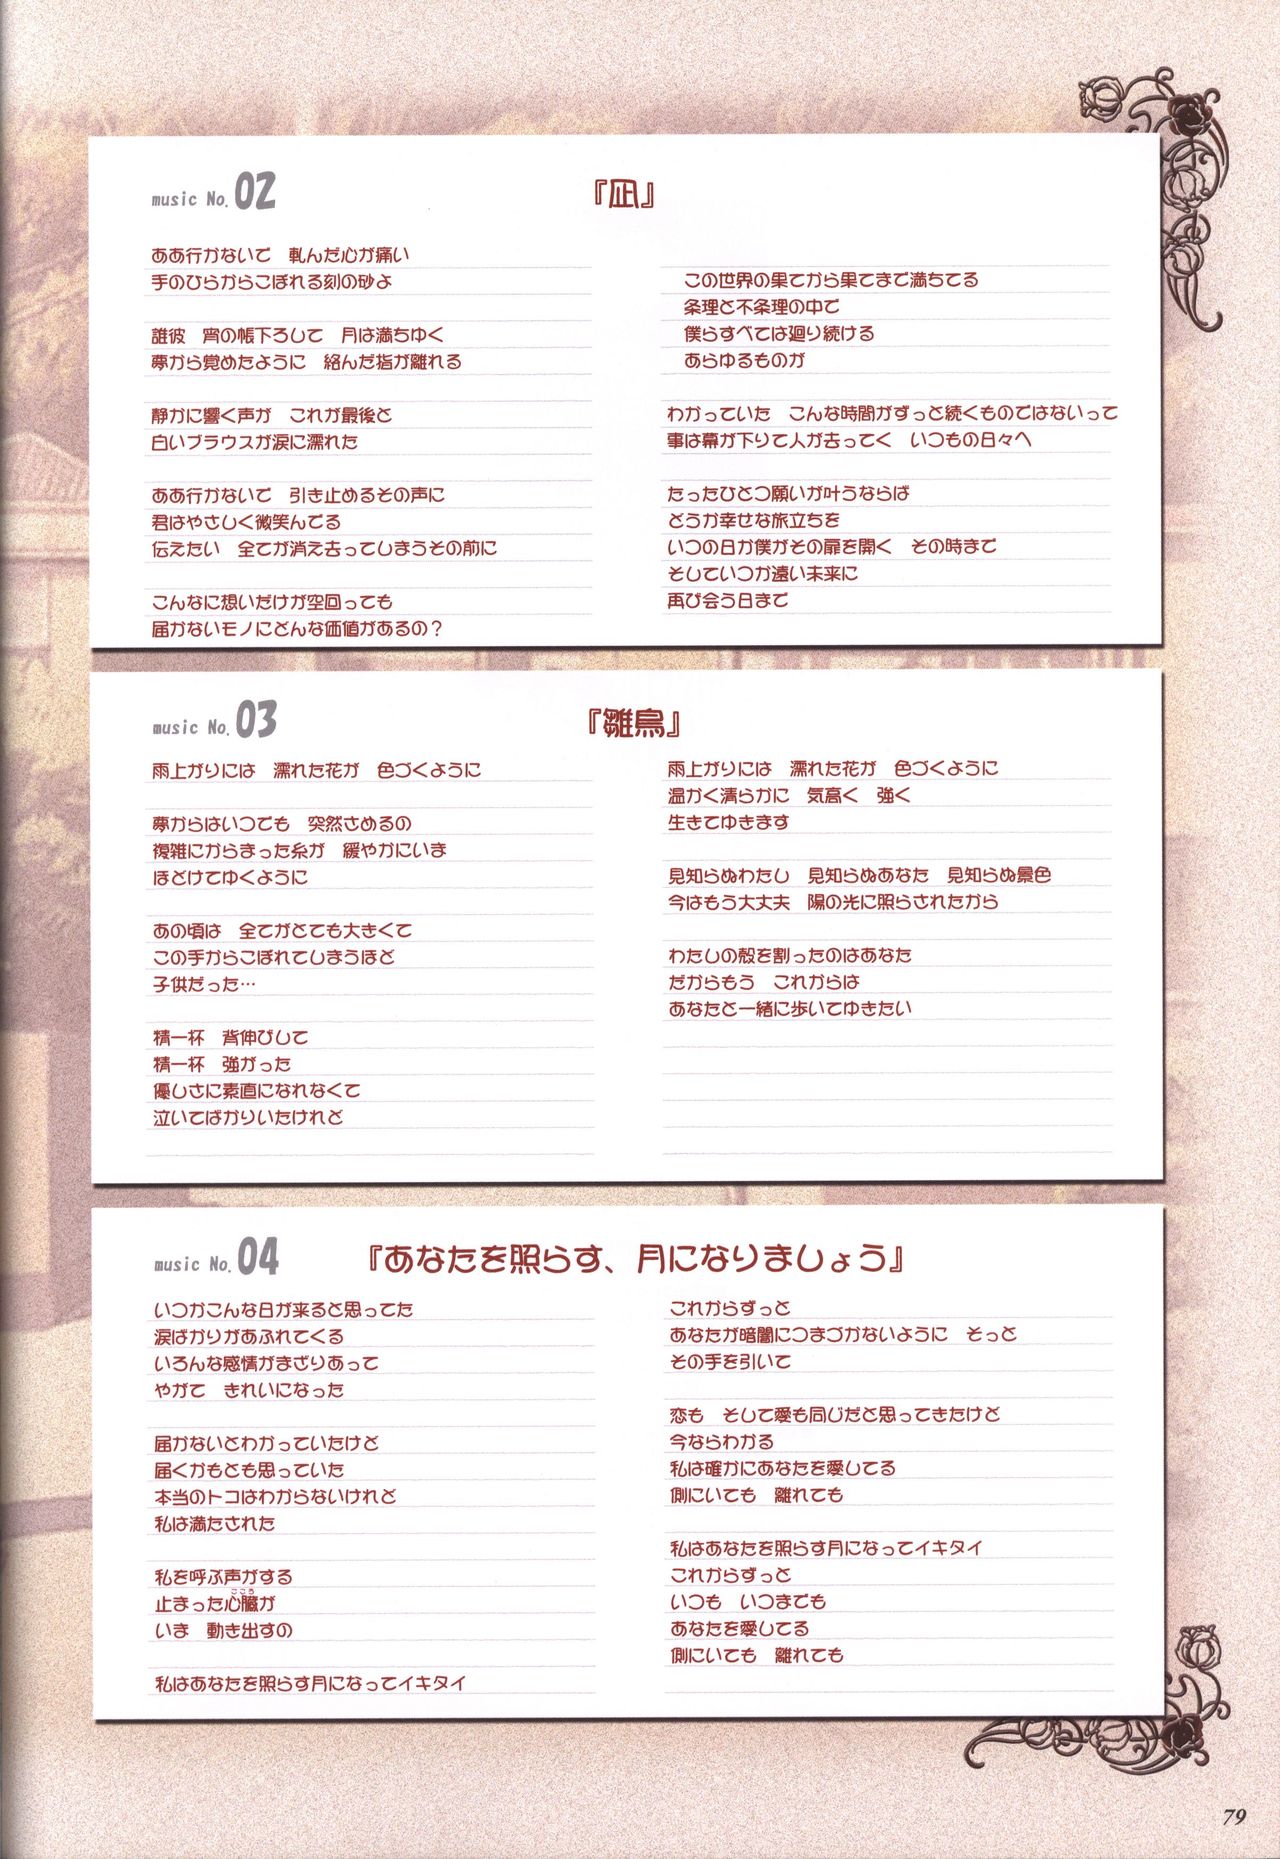 music No.02
『凪』
ああ行かないで　軋んだ心が痛い
手のひらからこぼれる刻の砂よ
誰彼　宵の帳下ろして　月は満ちゆく
夢から覚めたように　絡んだ指が離れる
静かに響く声が　これが最後と
白いブラウスが涙に濡れた
ああ行かないで　引き止めるその声に
君はやさしく微笑んでる
伝えたい　全てが消え去ってしまうその前に
こんなに想いだけが空回っても
届かないモノにどんな価値があるの？
この世界の果てから果てまで満ちてる
条理と不条理の中で
僕らすべては廻り続ける
あらゆるものが
わかっていた　こんな時間がずっと続くものではないって
事は幕が下りて人が去ってく　いつもの日々へ
たったひとつ願いが叶うならば
どうか幸せな旅立ちを
いつの日か僕がその扉を開く　その時まで
そしていつか遠い未来に
再び会う日まで
music No.03
『雛鳥』
雨上がりには　濡れた花が　色づくように
夢からはいつでも　突然さめるの
複雑にからまった糸が　緩やかにいま
ほどけてゆくように
あの頃は　全てがとても大きくて
この手からこぼれてしまうほど
子供だった…
精一杯　背伸びして
精一杯　強がった
優しさに素直になれなくて
泣いてばかりいたけれど
雨上がりには　濡れた花が　色づくように
温かく清らかに　気高く　強く
生きてゆきます
見知らぬわたし　見知らぬあなた　見知らぬ景色
今はもう大丈夫　陽の光に照らされたから
わたしの殻を割ったのはあなた
だからもう　これからは
あなたと一緒に歩いてゆきたい
music No.04
『あなたを照らす、月になりましょう』
いつかこんな日が来ると思ってた
涙ばかりがあふれてくる
いろんな感情がまざりあって
やがて　きれいになった
届かないとわかっていたけど
届くかもとも思っていた
本当のトコはわからないけれど
私は満たされた
私を呼ぶ声がする
止まった心臓が
こころ
いま　動き出すの
私はあなたを照らす月になってイキタイ
これからずっと
あなたが暗闇につまづかないように　そっと
その手を引いて
恋も　そして愛も同じだと思ってきたけど
今ならわかる
私は確かにあなたを愛してる
側にいても　離れても
私はあなたを照らす月になってイキタイ
これからずっと
いつも　いつまでも
あなたを愛してる
側にいても　離れても
79